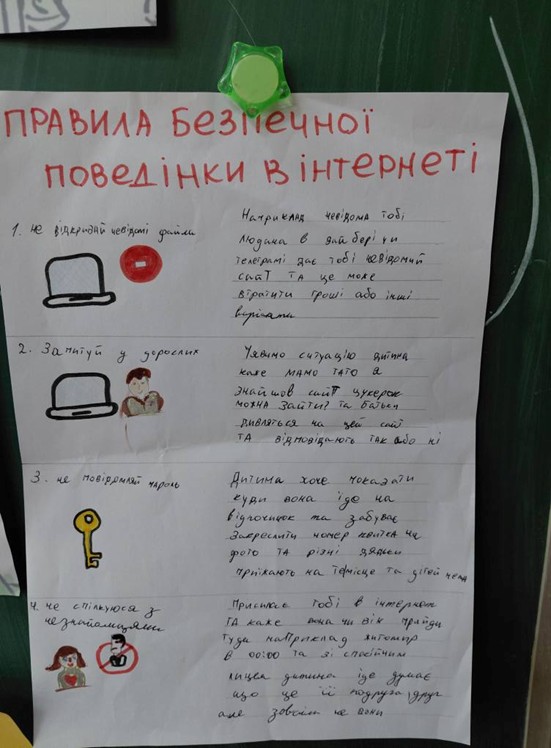 ПРАВИЛА БЕЗПЕЧНОЇ
ПОВЕДІНКИ В ІНТЕРНЕТІ
1. Не відкривай невідомі файли
Наприклад невідома тобі
людина в вайбері чи
телеграмі дає тобі невідомий
сайт ТА це може
втратити гроші або інші
2. Запитуй у дорослих
Уявімо ситуацію дитина
каже мамо тато я
знайшов сайт цукерок
можна зайти? та батьки
дивляться на цей сайт
ТА відповідають так або ні
3. не повідомляй пароль
Дитина хоче показати
куди вона їде на
відпочинок та забуває
закреслити номер квитка на
фото ТА різні дядьки
приїхають на те місце та дітей нема
4. не спілкуйся з
незнайомцями
Присилає тобі в інтернеті
ТА каже вона чи він прийди
туди наприклад житомир
в 00:00 та зі спокійним
лицем дитина іде думає
що це її подруга, друг
але зовсім не вони